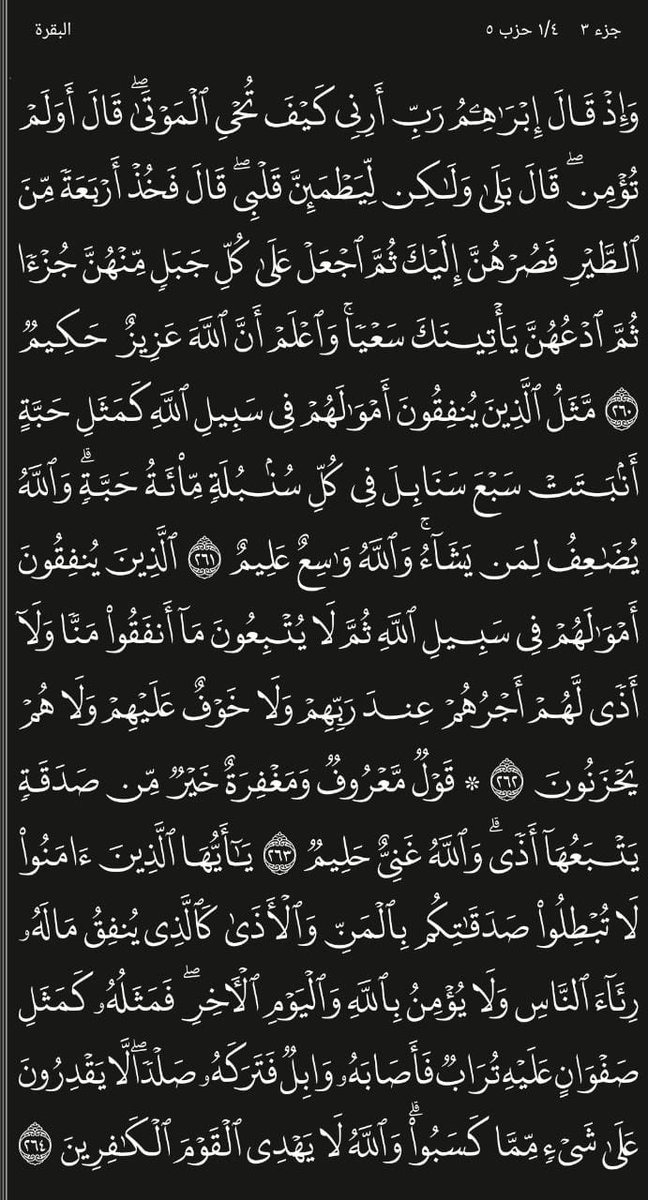 جزء ٣ ١/٤ حزب ٥ البقرة
وَإِذۡ قَالَ إِبۡرَٰهِـۧمُ رَبِّ أَرِنِي كَيۡفَ تُحۡيِ ٱلۡمَوۡتَىٰۖ قَالَ أَوَلَمۡ
تُؤۡمِنۖ قَالَ بَلَىٰ وَلَٰكِن لِّيَطۡمَئِنَّ قَلۡبِيۖ قَالَ فَخُذۡ أَرۡبَعَةٗ مِّنَ
ٱلطَّيۡرِ فَصُرۡهُنَّ إِلَيۡكَ ثُمَّ ٱجۡعَلۡ عَلَىٰ كُلِّ جَبَلٖ مِّنۡهُنَّ جُزۡءٗا
ثُمَّ ٱدۡعُهُنَّ يَأۡتِينَكَ سَعۡيٗاۚ وَٱعۡلَمۡ أَنَّ ٱللَّهَ عَزِيزٌ حَكِيمٞ
٢٦٠ مَّثَلُ ٱلَّذِينَ يُنفِقُونَ أَمۡوَٰلَهُمۡ فِي سَبِيلِ ٱللَّهِ كَمَثَلِ حَبَّةٍ
أَنۢبَتَتۡ سَبۡعَ سَنَابِلَ فِي كُلِّ سُنۢبُلَةٖ مِّاْئَةُ حَبَّةٖۗ وَٱللَّهُ
يُضَٰعِفُ لِمَن يَشَآءُۚ وَٱللَّهُ وَٰسِعٌ عَلِيمٌ ٢٦١ ٱلَّذِينَ يُنفِقُونَ
أَمۡوَٰلَهُمۡ فِي سَبِيلِ ٱللَّهِ ثُمَّ لَا يُتۡبِعُونَ مَآ أَنفَقُواْ مَنّٗا وَلَآ
أَذٗى لَّهُمۡ أَجۡرُهُمۡ عِندَ رَبِّهِمۡ وَلَا خَوۡفٌ عَلَيۡهِمۡ وَلَا هُمۡ
يَحۡزَنُونَ ٢٦٢ ۞ قَوۡلٞ مَّعۡرُوفٞ وَمَغۡفِرَةٌ خَيۡرٞ مِّن صَدَقَةٖ
يَتۡبَعُهَآ أَذٗىۗ وَٱللَّهُ غَنِيٌّ حَلِيمٞ ٢٦٣ يَٰٓأَيُّهَا ٱلَّذِينَ ءَامَنُواْ
لَا تُبۡطِلُواْ صَدَقَٰتِكُم بِٱلۡمَنِّ وَٱلۡأَذَىٰ كَٱلَّذِي يُنفِقُ مَالَهُۥ
رِئَآءَ ٱلنَّاسِ وَلَا يُؤۡمِنُ بِٱللَّهِ وَٱلۡيَوۡمِ ٱلۡأٓخِرِۖ فَمَثَلُهُۥ كَمَثَلِ
صَفۡوَانٍ عَلَيۡهِ تُرَابٞ فَأَصَابَهُۥ وَابِلٞ فَتَرَكَهُۥ صَلۡدٗاۖ لَّا يَقۡدِرُونَ
عَلَىٰ شَيۡءٖ مِّمَّا كَسَبُواْۗ وَٱللَّهُ لَا يَهۡدِي ٱلۡقَوۡمَ ٱلۡكَٰفِرِينَ ٢٦٤